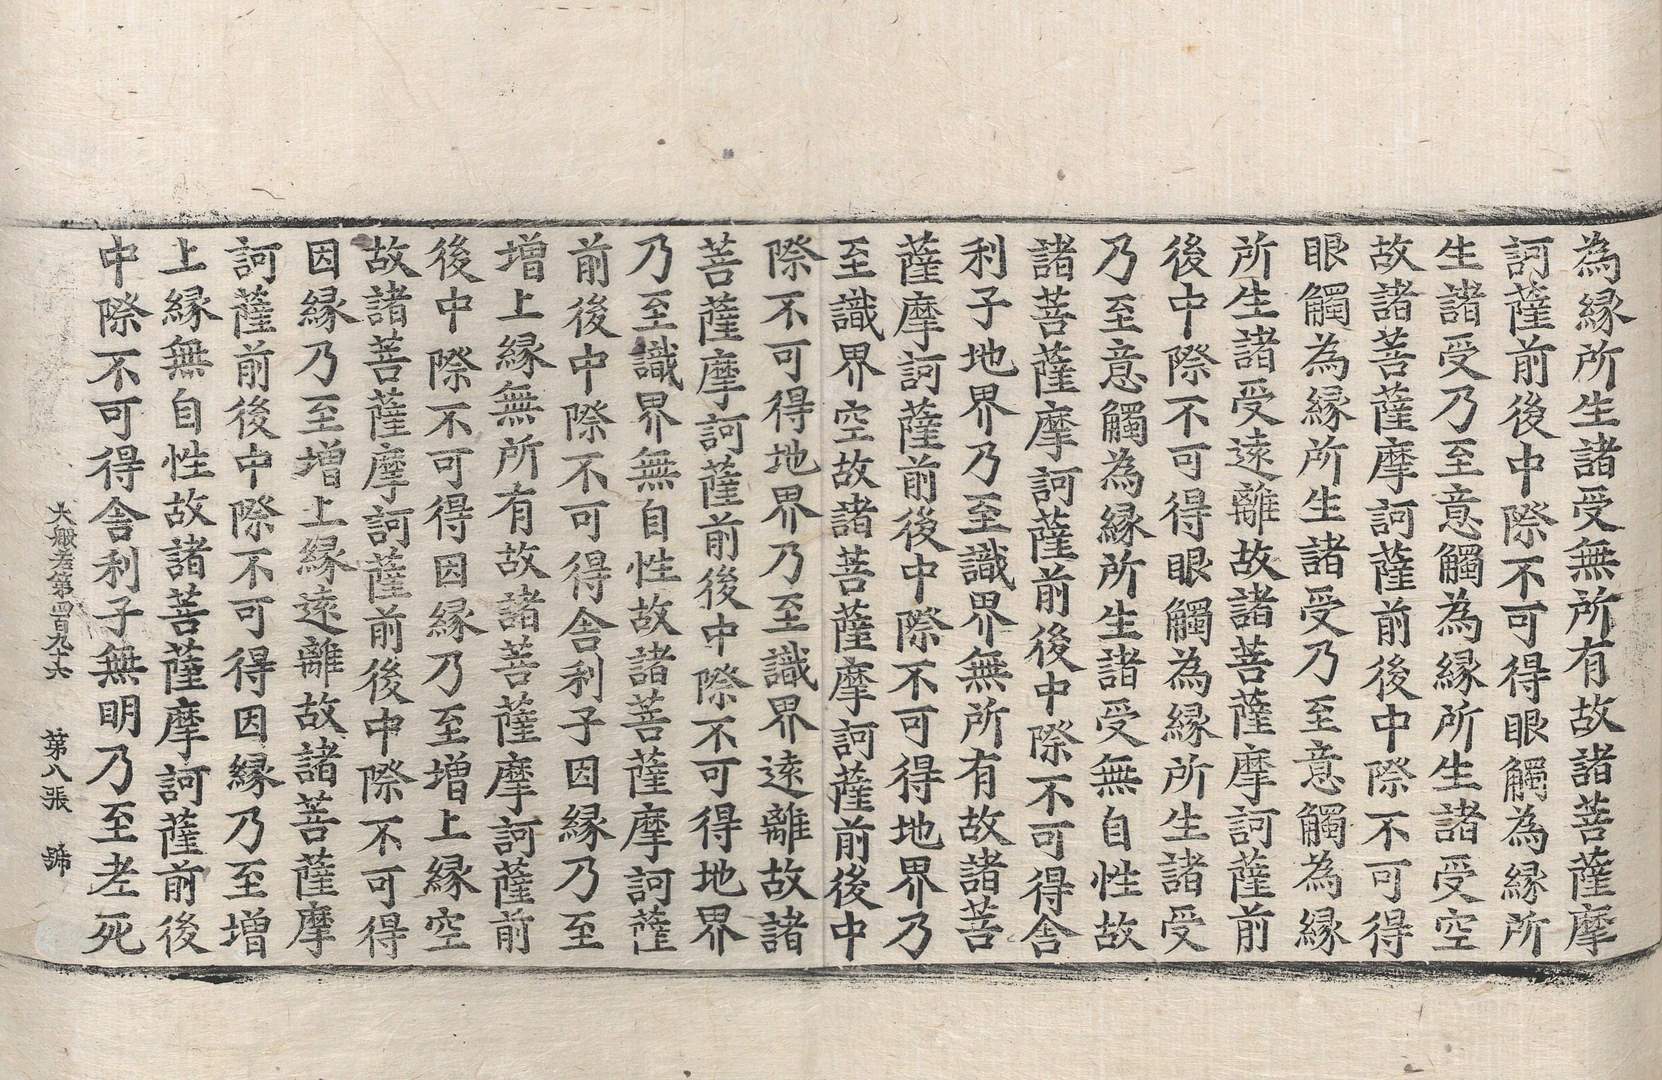 為縁所生諸受無所有故諸菩薩摩
訶薩前後中際不可得眼觸為縁所
生諸受乃至意觸為縁所生諸受空
故諸菩薩摩訶薩前後中際不可得
眼觸為縁所生諸受乃至意觸為縁
所生諸受遠離故諸菩薩摩訶薩前
後中際不可得眼觸為縁所生諸受
乃至意觸為縁所生諸受無自性故
諸菩薩摩訶薩前後中際不可得舍
利子地界乃至識界無所有故諸菩
薩摩訶薩前後中際不可得地界乃
至識界空故諸菩薩摩訶薩前後中
際不可得地界乃至識界遠離故諸
菩薩摩訶薩前後中際不可得地界
乃至識界無自性故諸菩薩摩訶薩
前後中際不可得舍利子因縁乃至
增上縁無所有故諸菩薩摩訶薩前
後中際不可得因縁乃至增上縁空
故諸菩薩摩訶薩前後中際不可得
因縁乃至增上縁遠離故諸菩薩摩
訶薩前後中際不可得因縁乃至增
上縁無自性故諸菩薩摩訶薩前後
中際不可得舍利子無明乃至老死
大般若第四百九十六 第八張